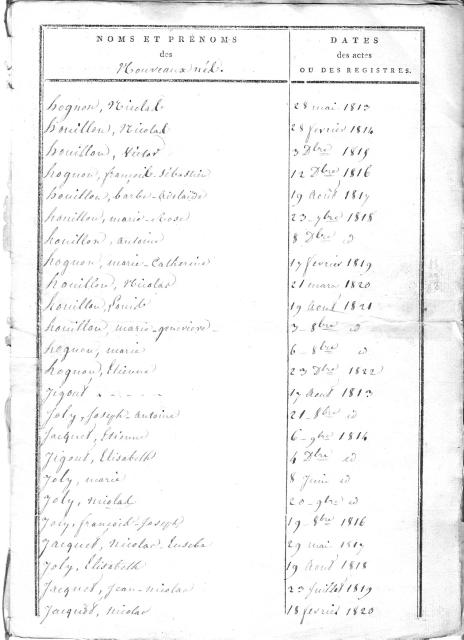 NOMS ET PRÉNOMS
DATES
des
des actes
Nouveaux nés.
OU DES REGISTRES.
hognon, Nicolas 28 mai 1813
houillon, Nicolas 28 fevrier 1814
houillon, Victor 3 Dbre 1815
hognon, françois-Sébastien 12 Dbre 1816
houillon, barbe-Adelaïde 19 Août 1817
houillon, marie-Rose 23-7bre 1818
houillon, Antoine 8 Dbre id
hognon, marie-Catherine 17 fevrier 1819
houillon, Nicolas 21 mars 1820
houillon, Louis 19 Août 1821
houillon, marie-genevieve- 3-8bre id
hognon, marie 6-8bre id
hognon, Etienne 23 Dbre 1822
Jigout - - - - - 17 Août 1813
Joly, Joseph-Antoine 21-8bre id
Jacquot, Etienne 6-9bre 1814
Jigout, Elisabeth 4 Dbre id
Joly, marie 8 Juin id
Joly, Nicolas 20-9bre id
Joly, françois-Joseph 19-8bre 1816
Jacquot, Nicolas-Eusebe 29 mai 1817
Joly, Elisabeth 19 Août 1818
Jacquot, Jean-nicolas 23 Juillet 1819
Jacquot, nicolas 18 fevrier 1820